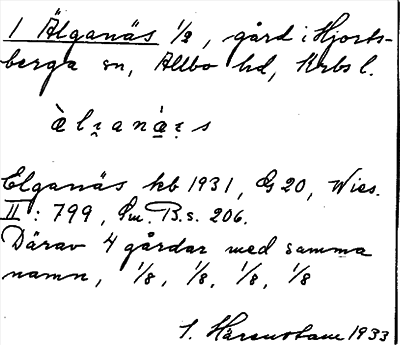 1 Älganäs 1/2, gård i Hjorts-
berga sn, Allbo hd, Krbs l.
æ̀ l ɪ̯ a n æ̀ ɪ̯ s
Elganäs kb 1931, G 20, Wies.
II: 799, Sm. B.s. 206.
Därav 4 gårdar med samma
namn, 1/8, 1/8, 1/8, 1/8
1933